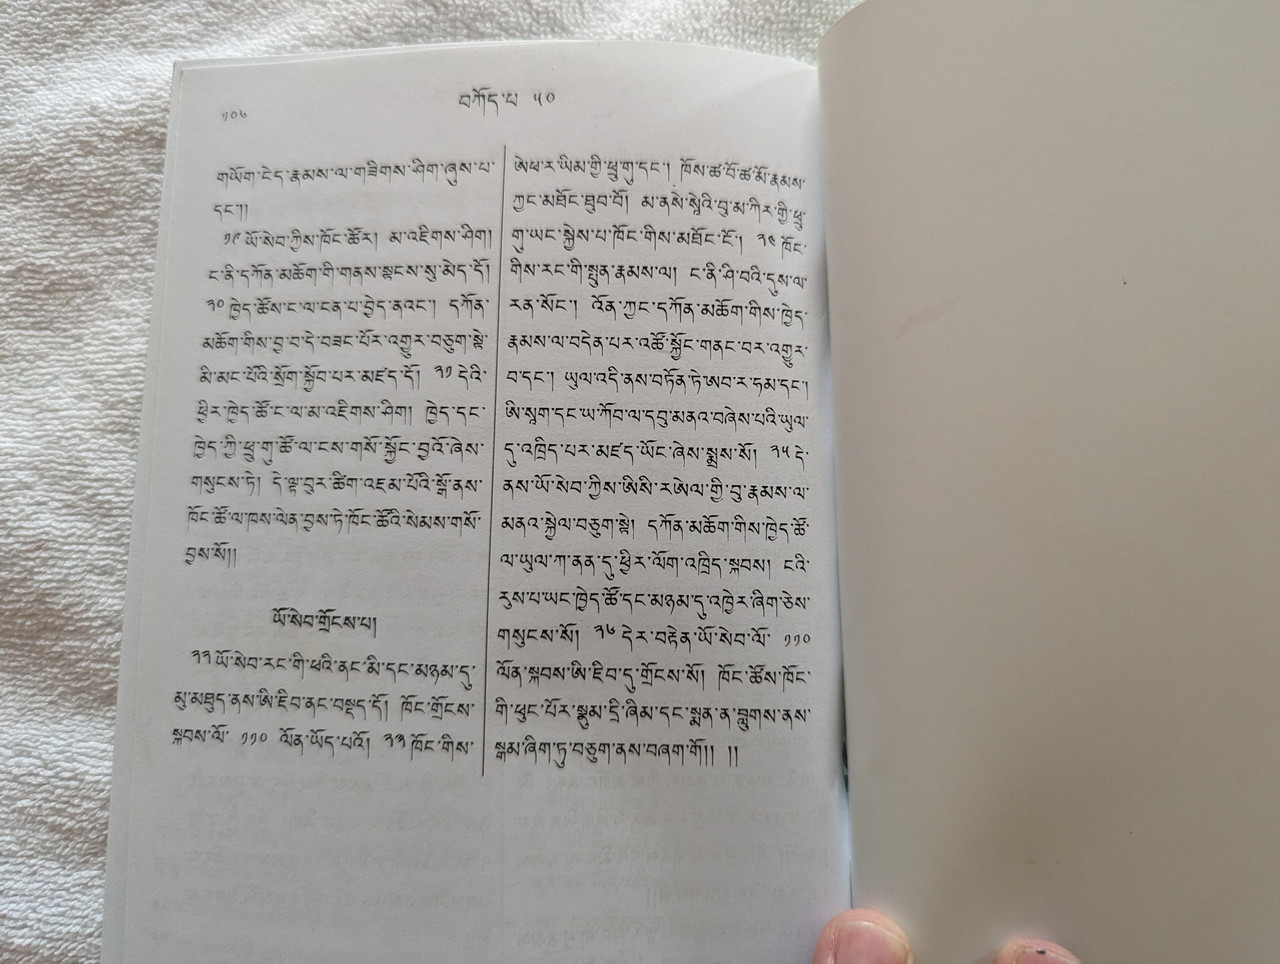 ༡༠༦
བཀོད་པ ༥༠
གཡོག་ངེད་རྣམས་ལ་གཟིགས་ཤིག་ཞུས་པ་
དང་།།
༡༩ ཡོ་སེབ་ཀྱིས་ཁོང་ཚོར། མ་འཇིགས་ཤིག།
ང་ནི་དཀོན་མཆོག་གི་གནས་སྟངས་སུ་མེད་དོ།
༢༠ ཁྱེད་ཚོས་ང་ལ་ངན་པ་བྱེད་ནའང་། དཀོན་
མཆོག་གིས་བྱ་བ་དེ་བཟང་པོར་འགྱུར་བཅུག་སྟེ་
མི་མང་པོའི་སྲོག་སྐྱོབ་པར་མཛད་དོ། ༢༡ དེའི་
ཕྱིར་ཁྱེད་ཚོ་ང་ལ་མ་འཇིགས་ཤིག། ཁྱེད་དང་
ཁྱེད་ཀྱི་ཕྲུ་གུ་ཚོ་ལ་ངས་གསོ་སྐྱོང་བྱའོ་ཞེས་
གསུངས་ཏེ། དེ་ལྟ་བུར་ཚིག་འཇམ་པོའི་སྒོ་ནས་
ཁོང་ཚོ་ལ་ཁས་ལེན་བྱས་ཏེ་ཁོང་ཚོའི་སེམས་གསོ་
བྱས་སོ།།
ཡོ་སེབ་གྲོངས་པ།
༢༢ ཡོ་སེབ་རང་གི་ཕའི་ནང་མི་དང་མཉམ་དུ་
མུ་མཐུད་ནས་ཨི་ཇིབ་ནང་བསྡད་དོ། ཁོང་གྲོངས་
སྐབས་ལོ་ ༡༡༠ ལོན་ཡོད་པའོ། ༢༣ ཁོང་གིས་
ཨེཕ་ར་ཡིམ་གྱི་ཕྲུ་གུ་དང་། ཁོས་ཚ་བོ་ཚ་མོ་རྣམས་
ཀྱང་མཐོང་ཐུབ་བོ། མ་ནསེ་སྶེའི་བུ་མ་ཀིར་གྱི་ཕྲུ་
གུ་ཡང་སྐྱེས་པ་ཁོང་གིས་མཐོང་ངོ་། ༢༤ ཁོང་
གིས་རང་གི་སྤུན་རྣམས་ལ། ང་ནི་ཤི་བའི་དུས་ལ་
རན་སོང་། འོན་ཀྱང་དཀོན་མཆོག་གིས་ཁྱེད་
རྣམས་ལ་བདེན་པར་འཚོ་སྐྱོང་གནང་བར་འགྱུར་
བ་དང་། ཡུལ་འདི་ནས་བཏོན་ཏེ་ཨབ་ར་ཧམ་དང་།
ཨི་སཱག་དང་ཡ་ཀོབ་ལ་དབུ་མནའ་བཞེས་པའི་ཡུལ་
དུ་འཁྲིད་པར་མཛད་ཡོང་ཞེས་སྨྲས་སོ། ༢༥ དེ་
ནས་ཡོ་སེབ་ཀྱིས་ཨིསི་རཨེལ་གྱི་བུ་རྣམས་ལ་
མནའ་སྐྱེལ་བཅུག་སྟེ། དཀོན་མཆོག་གིས་ཁྱེད་ཚོ་
ལ་ཡུལ་ཀ་ནན་དུ་ཕྱིར་ལོག་འཁྲིད་སྐབས། ངའི་
རུས་པ་ཡང་ཁྱེད་ཚོ་དང་མཉམ་དུ་འཁྱེར་ཞིག་ཅེས་
གསུངས་སོ། ༢༦ དེར་བརྟེན་ཡོ་སེབ་ལོ་ ༡༡༠
ལོན་སྐབས་ཨི་ཇིབ་དུ་གྲོངས་སོ། ཁོང་ཚོས་ཁོང་
གི་ཕུང་པོར་སྣུམ་དྲི་ཞིམ་དང་སྨན་ན་བླུགས་ནས་
སྒམ་ཞིག་ཏུ་བཅུག་ནས་བཞག་གོ།། །།